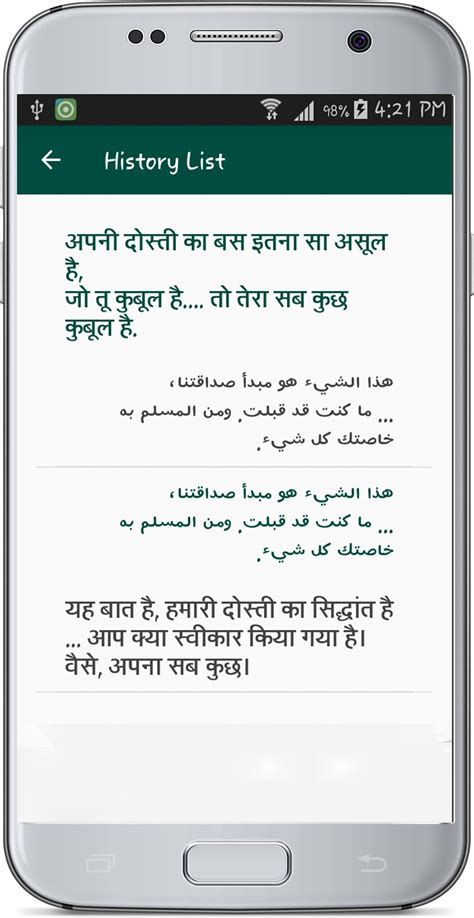 98% 4:21 PM
History List
अपनी दोस्ती का बस इतना सा असूल
है,
जो तू कुबूल है.... तो तेरा सब कुछ
कुबूल है.
هذا الشيء هو مبدأ صداقتنا،
... ما كنت قد قبلت. ومن المسلم به
خاصتك كل شيء.
هذا الشيء هو مبدأ صداقتنا،
... ما كنت قد قبلت. ومن المسلم به
خاصتك كل شيء.
यह बात है, हमारी दोस्ती का सिद्धांत है
... आप क्या स्वीकार किया गया है।
वैसे, अपना सब कुछ।